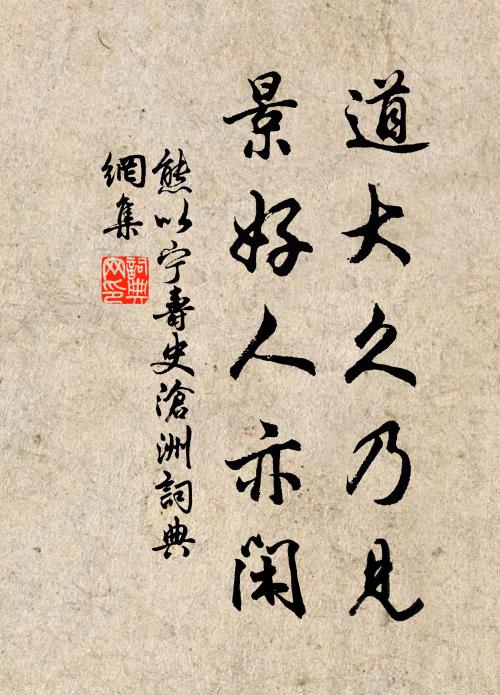 道大久乃見
景好人亦閑
熊以宁壽史滄洲詞典
網集
詞典
网印